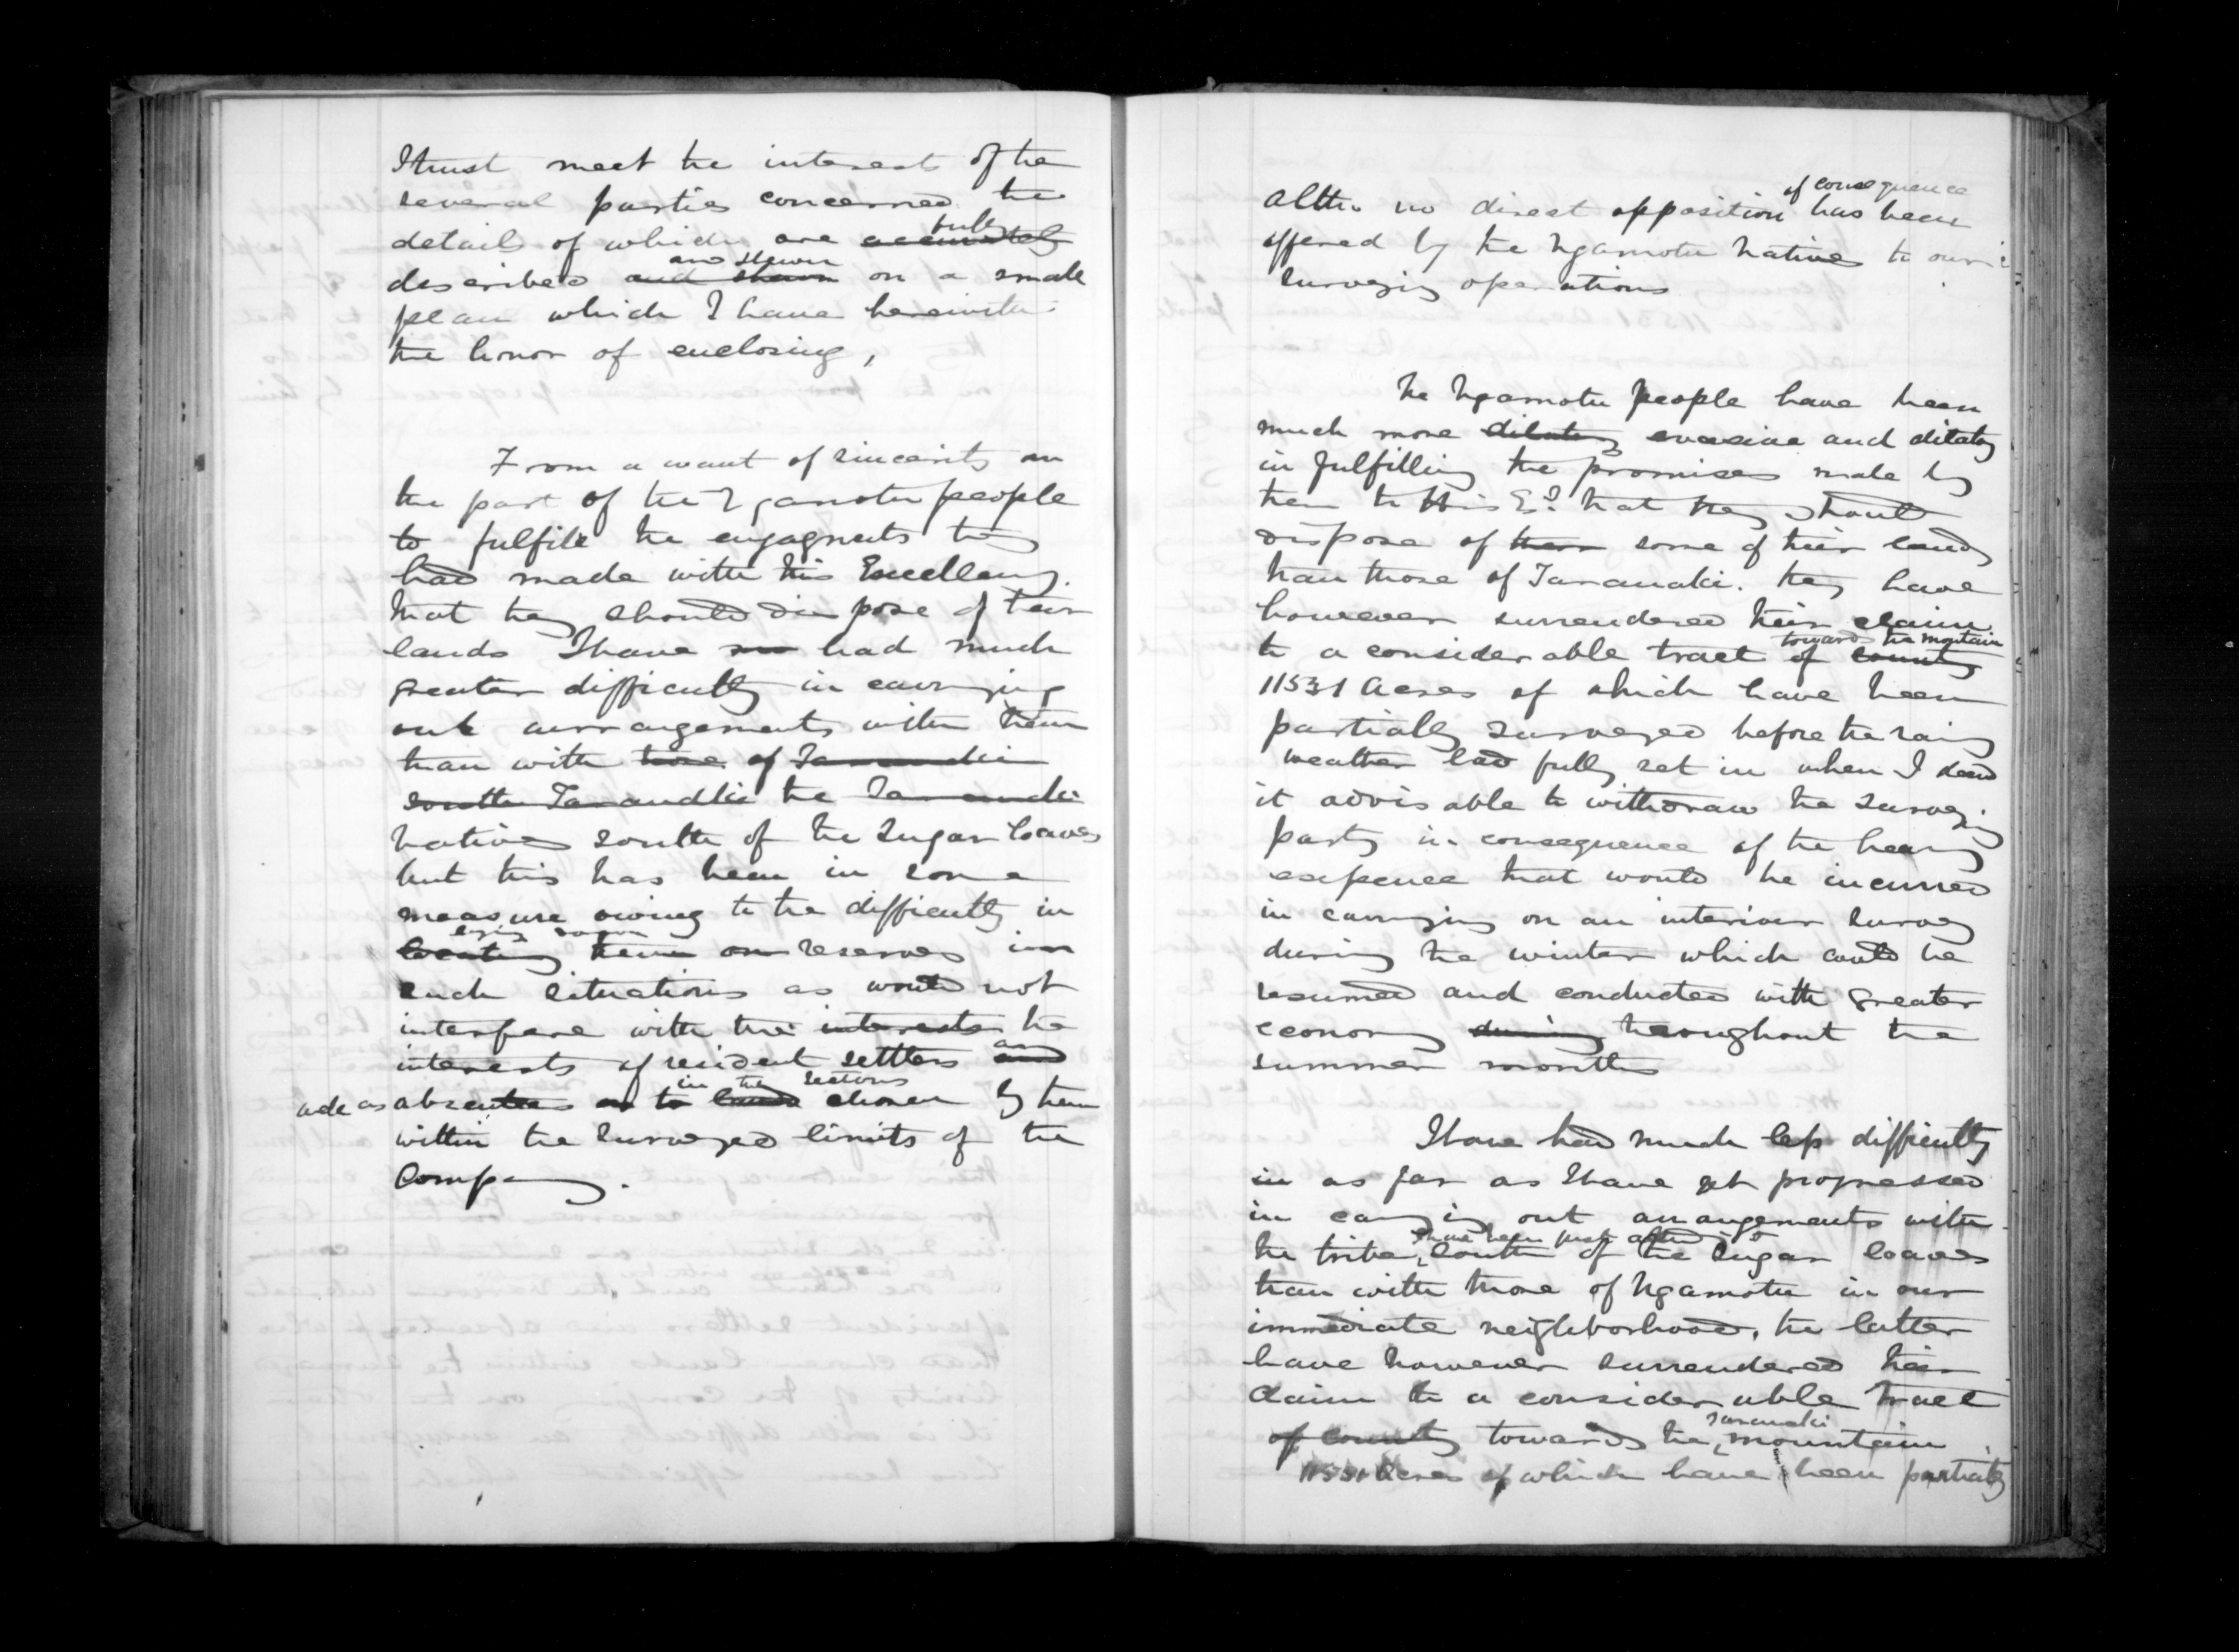 I trust meet the interest of the
several parties concerned the
fully
details of which are accurately
and shewn
described and shewn on a small
plan which I have herewith
the honor of enclosing,
From a want of sincerity on
the part of the Ngamotu people
to fulfill the engagments they
had made with His Excellency.
that they should dispose of their
lands I have had much
greater difficulty in carrying
out arrangements with them
than with those of Taranaki
south Taranaki the Taranaki
natives south of the Sugar Loaves
but this has been in some
measure owing to the difficulty in
laying down
locating them on reserves in
such situations as would not
interfere with the interests the
interests of resident settlers and
in the sections
absentees as to lands chosen by them
within the surveyed limits of the
Company.
of consequence
Altho no direct opposition has been
offered by the Ngamotu Natives to our
surveying operations
The Ngamotu people have been
much more dilatory evasive and dilatory
in fulfilling the promises made by
them to His Ey. that they should
dispose of them some of their lands
than those of Taranaki. they have
however surrendered their claim
towards the mountain
to a considerable tract of country
11531 Acres of which have been
partially surveyed before the rainy
weather had fully set in when I deemd
it advisable to withdraw the surveying
party in consequence of the heavy
expence that would be incurred
in carrying on an interior survey
during the winter which could be
resumed and conducted with greater
economy during throughout the
summer months
I have had much less difficulty
in as far as I have yet progressed
in carrying out arrangements with
the tribe, south of the Sugar loaves
than with those of Ngamotu in our
immediate neighborhood, the latter
have however surrendered their
claim to a considerable tract
Taranaki
of country towards the mountain
11531 Acres of which have been partially